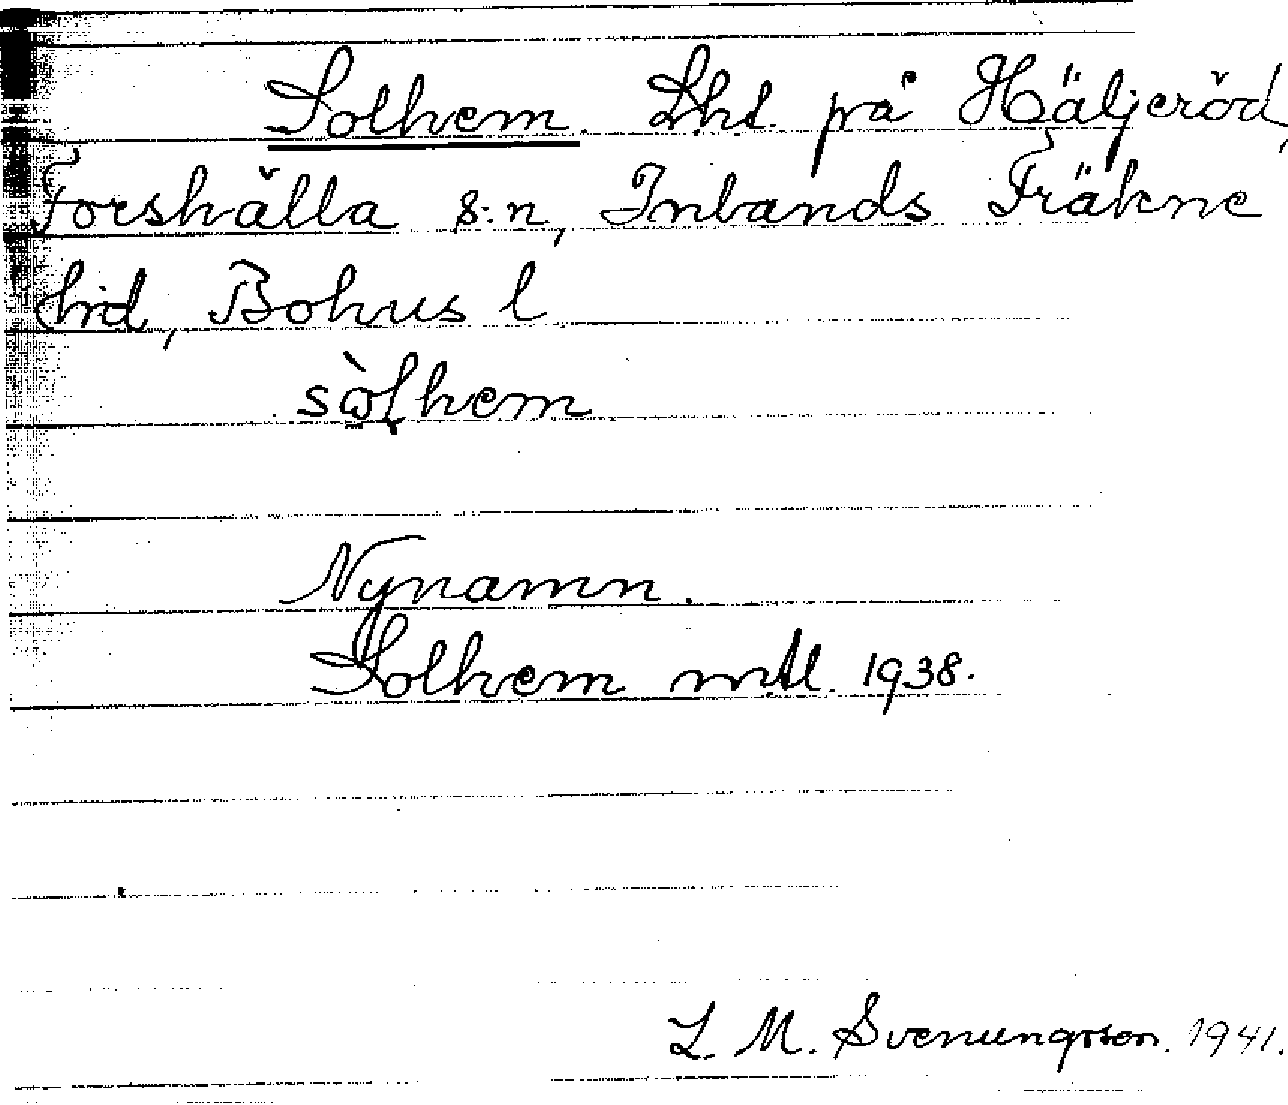 Solhem. Lht. på Häljeröd,
Forshälla s:n, Inlands Fräkne
hrd, Bohus l
sòlhem
Nynamn.
Solhem mtl. 1938.
L. M. Svenungsson. 1941.